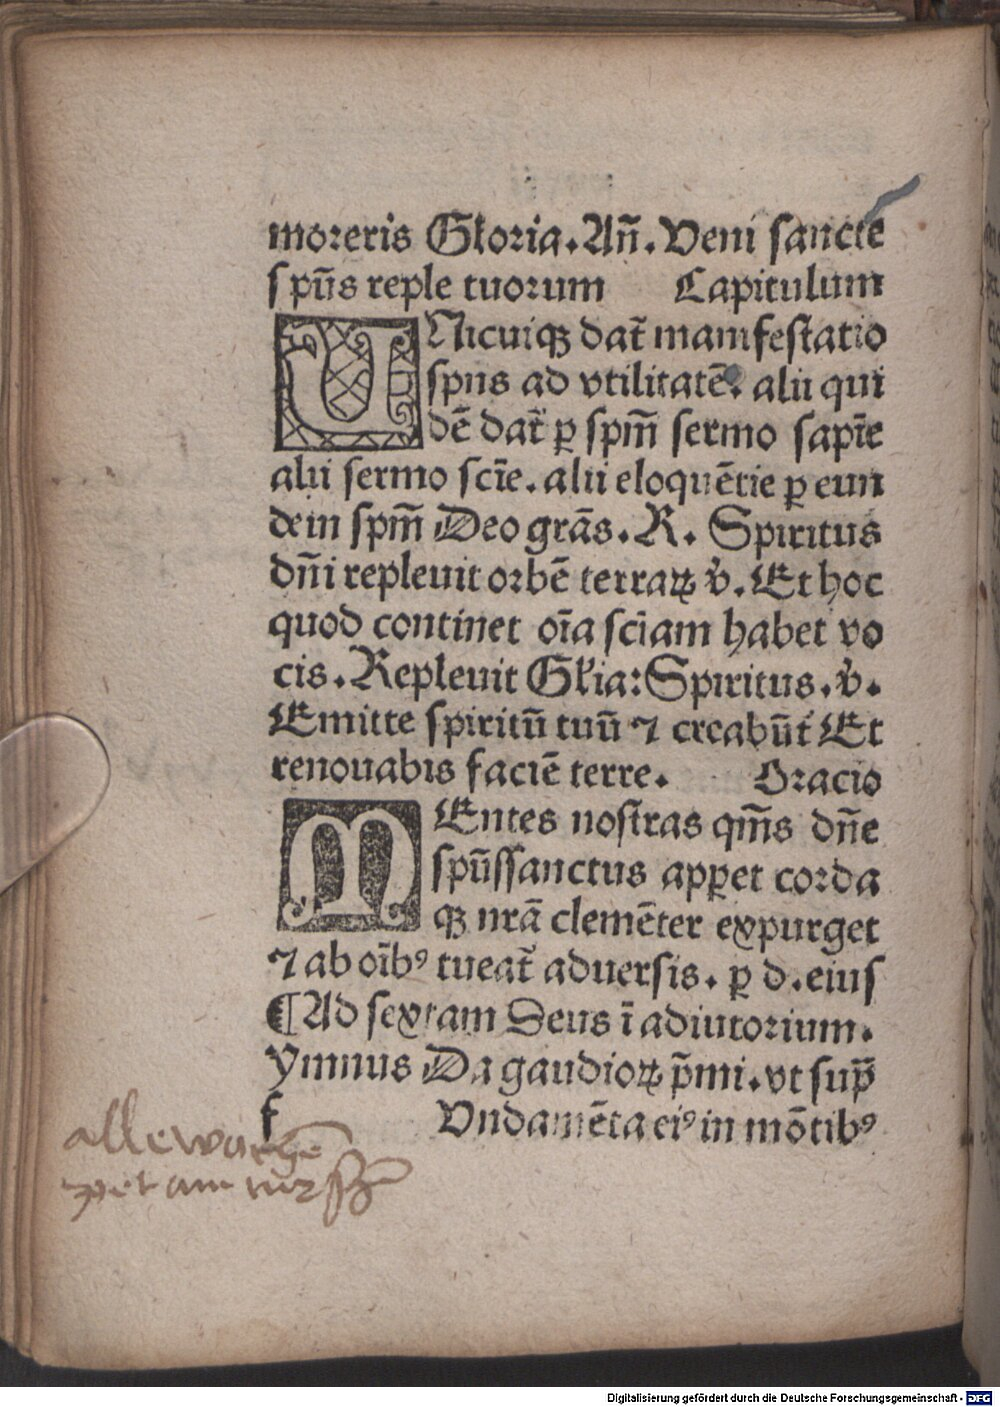 moreris Gloria. An̄. Veni sancte
spūs reple tuorum Capitulum
UNicuiqꝫ dat᷑ manifestatio
spūs ad vtilitatē. alii qui
dē dat᷑ ꝑ spm̄ sermo sapīe
alii sermo scīe. alii eloquētie ꝑ eun
dem spm̄ Deo grās. R. Spiritus
dn̄i repleuit orbē terraꝝ v̓. Et hoc
quod continet oīa sciam habet vo
cis. Repleuit Gl̓ia: Spiritus. v̓.
Emitte spiritū tuū ⁊ creabūt᷑ Et
renouabis faciē terre. Oracio
MEntes nostras qm̄s dn̄e
spūssanctus apꝑet corda
qꝫ nrā clemēter expurget
⁊ ab oībꝰ tueat᷑ aduersis. ꝑ d. eius
¶ Ad sextam Deus ī adiutorium.
Ymnus Da gaudioꝝ p̄mi. vt sup̄
f Vndamēta eiꝰ in mōtibꝰ
alle
Digitalisierung gefördert durch die Deutsche Forschungsgemeinschaft - DFG